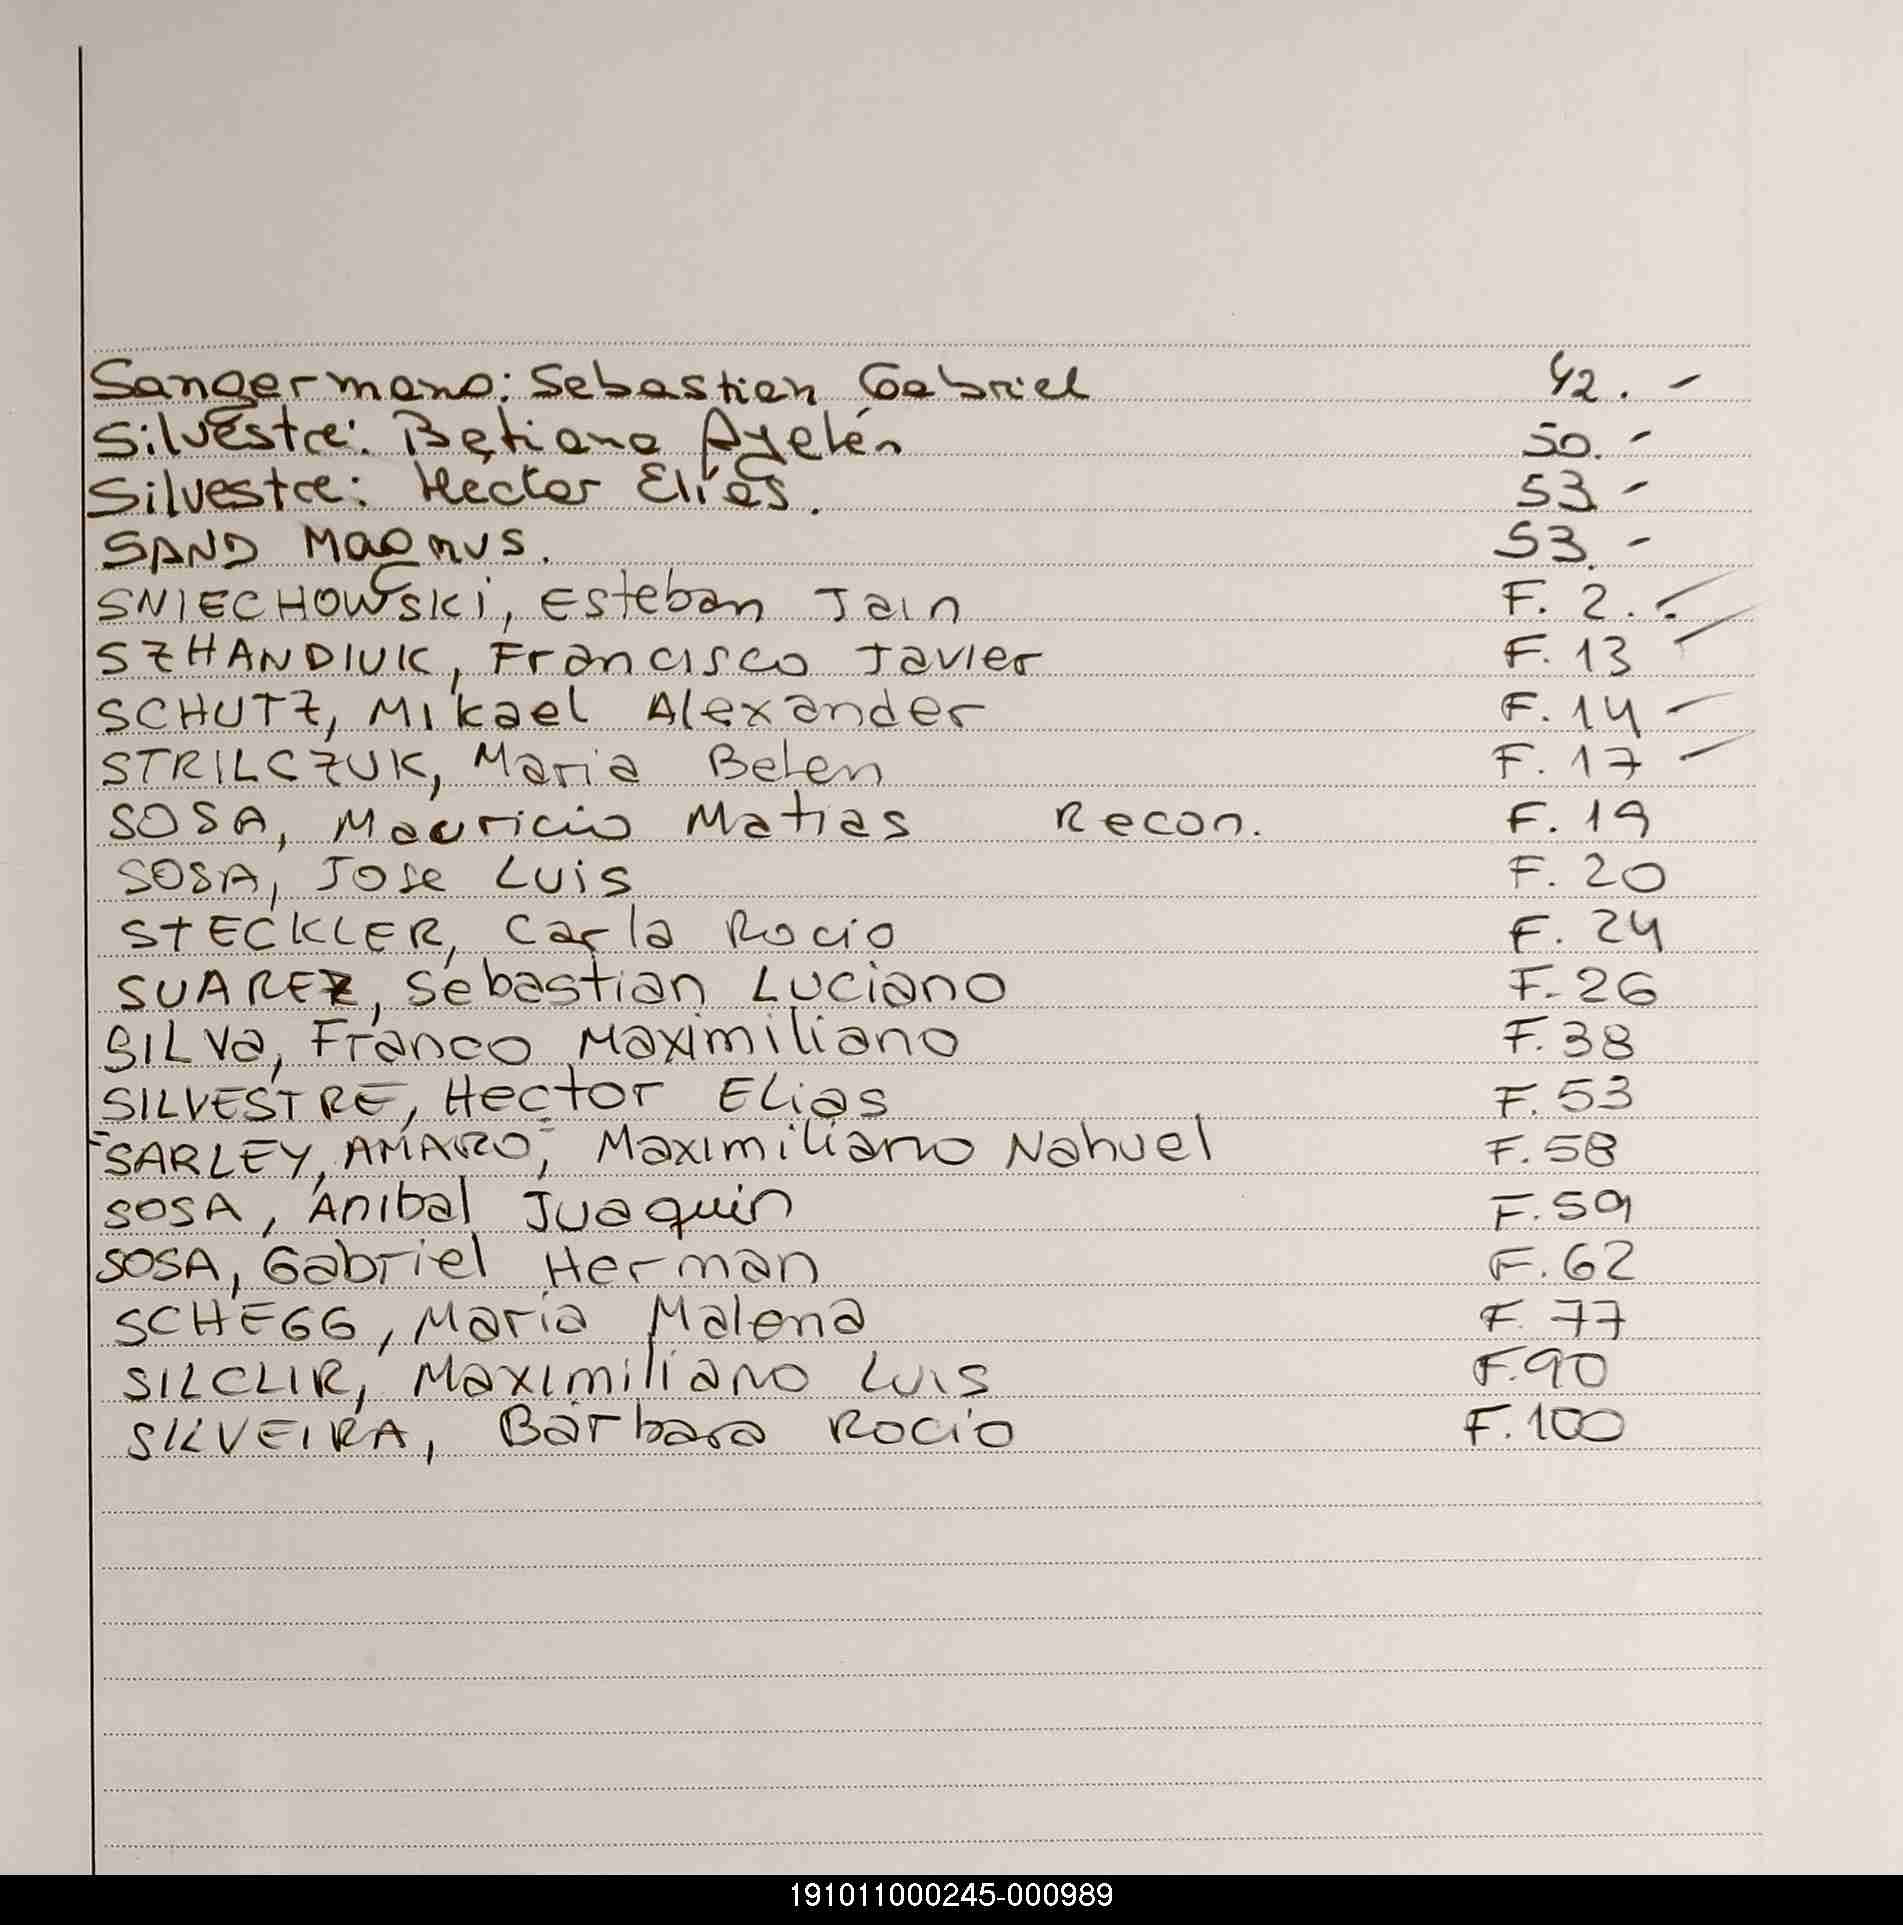 Sangermano: Sebastian Gabriel 42. -
Silvestre: Betiana Ayelén 50. -
Silvestre: Hector Elías. 53 -
SAND Magnus. 53. -
SNIECHOWSKI, Esteban Jain F. 2. -
SZHANDIUK, Francisco Javier F. 13
SCHUTZ, Mikael Alexander F. 14 -
STRILCZUK, Maria Belen F. 17 -
SOSA, Mauricio Matias Recon. F. 19
SOSA, Jose Luis F. 20
STECKLER, Carla Rocio F. 24
SUAREZ, Sebastian Luciano F. 26
SILVa, Franco Maximiliano F. 38
SILVESTRE, Hector Elias F. 53
"SARLEY, AMARO", Maximiliano Nahuel F. 58
SOSA, Anibal Juaquin F. 59
SOSA, Gabriel Herman F. 62
SCHEGG, Maria Malena F. 77
SILCLIR, Maximiliano Luis F. 90
SILVEIRA, Barbara Rocio F. 100
191011000245-000989